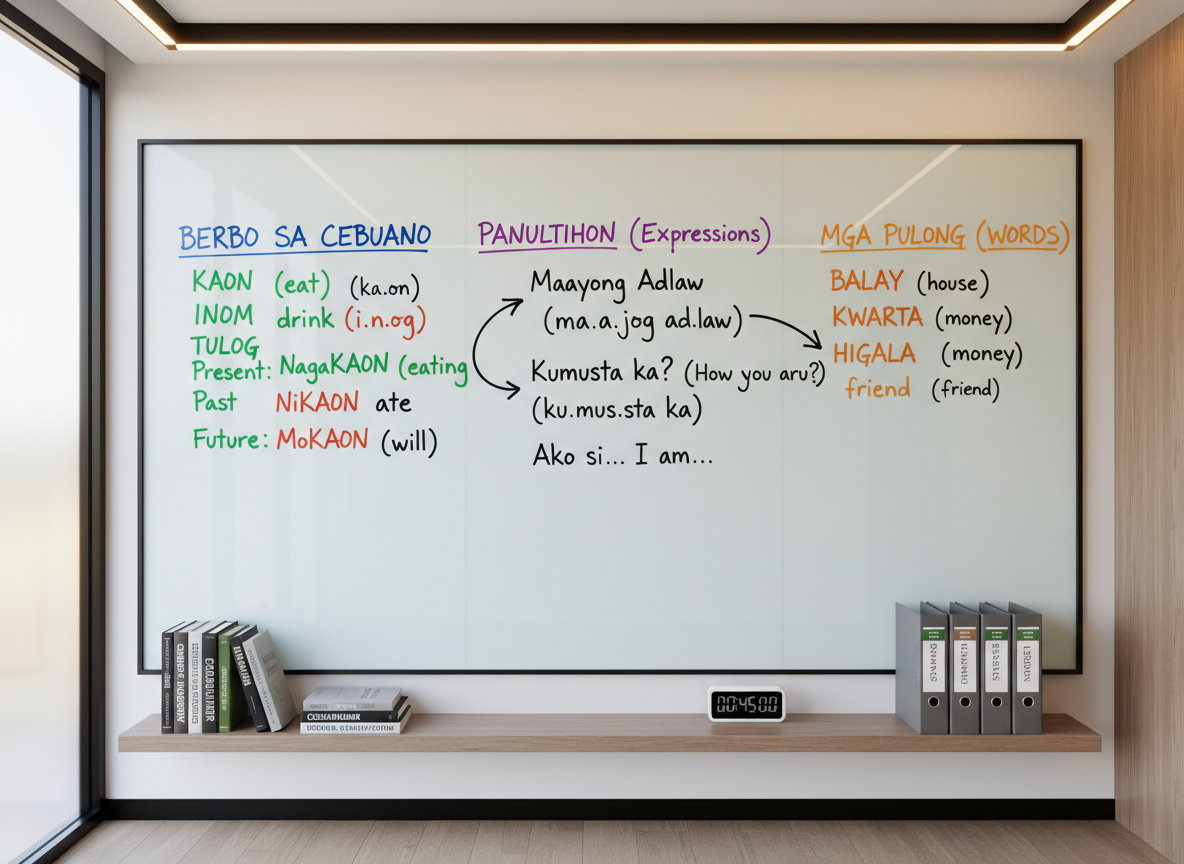 BERBO SA CEBUANO
KAON (eat) (ka.on)
INOM drink (i.n.og)
TULOG
Present: NagaKAON (eating
Past NiKAON ate
Future: MoKAON (will)
PANULTIHON (Expressions)
Maayong Adlaw
(ma.a.jog ad.law)
Kumusta ka? (How you aru?)
(ku.mus.sta ka)
Ako si... I am...
MGA PULONG (WORDS)
BALAY (house)
KWARTA (money)
HIGALA (money)
friend (friend)